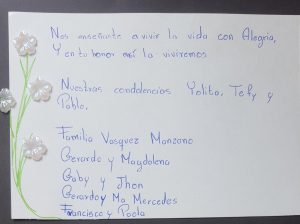 Nos enseñaste a vivir la vida con Alegría,
Y en tu honor así la viviremos
Nuestras condolencias Yolita, Tefy y
Pablo.
Familia Vasquez Manzano
Gerardo y Magdalena
Gaby y Jhon
Gerardo y Ma Mercedes
Francisco y Paola